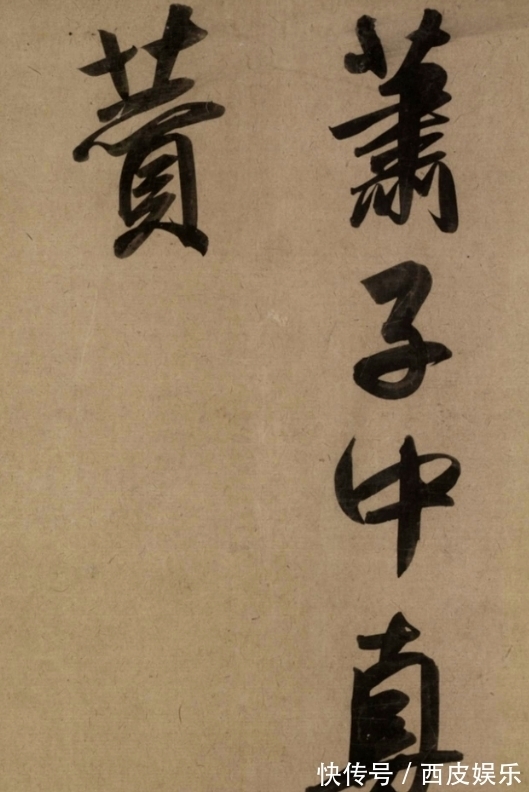 蕭子中真
贊
快传号 / 西皮娱乐